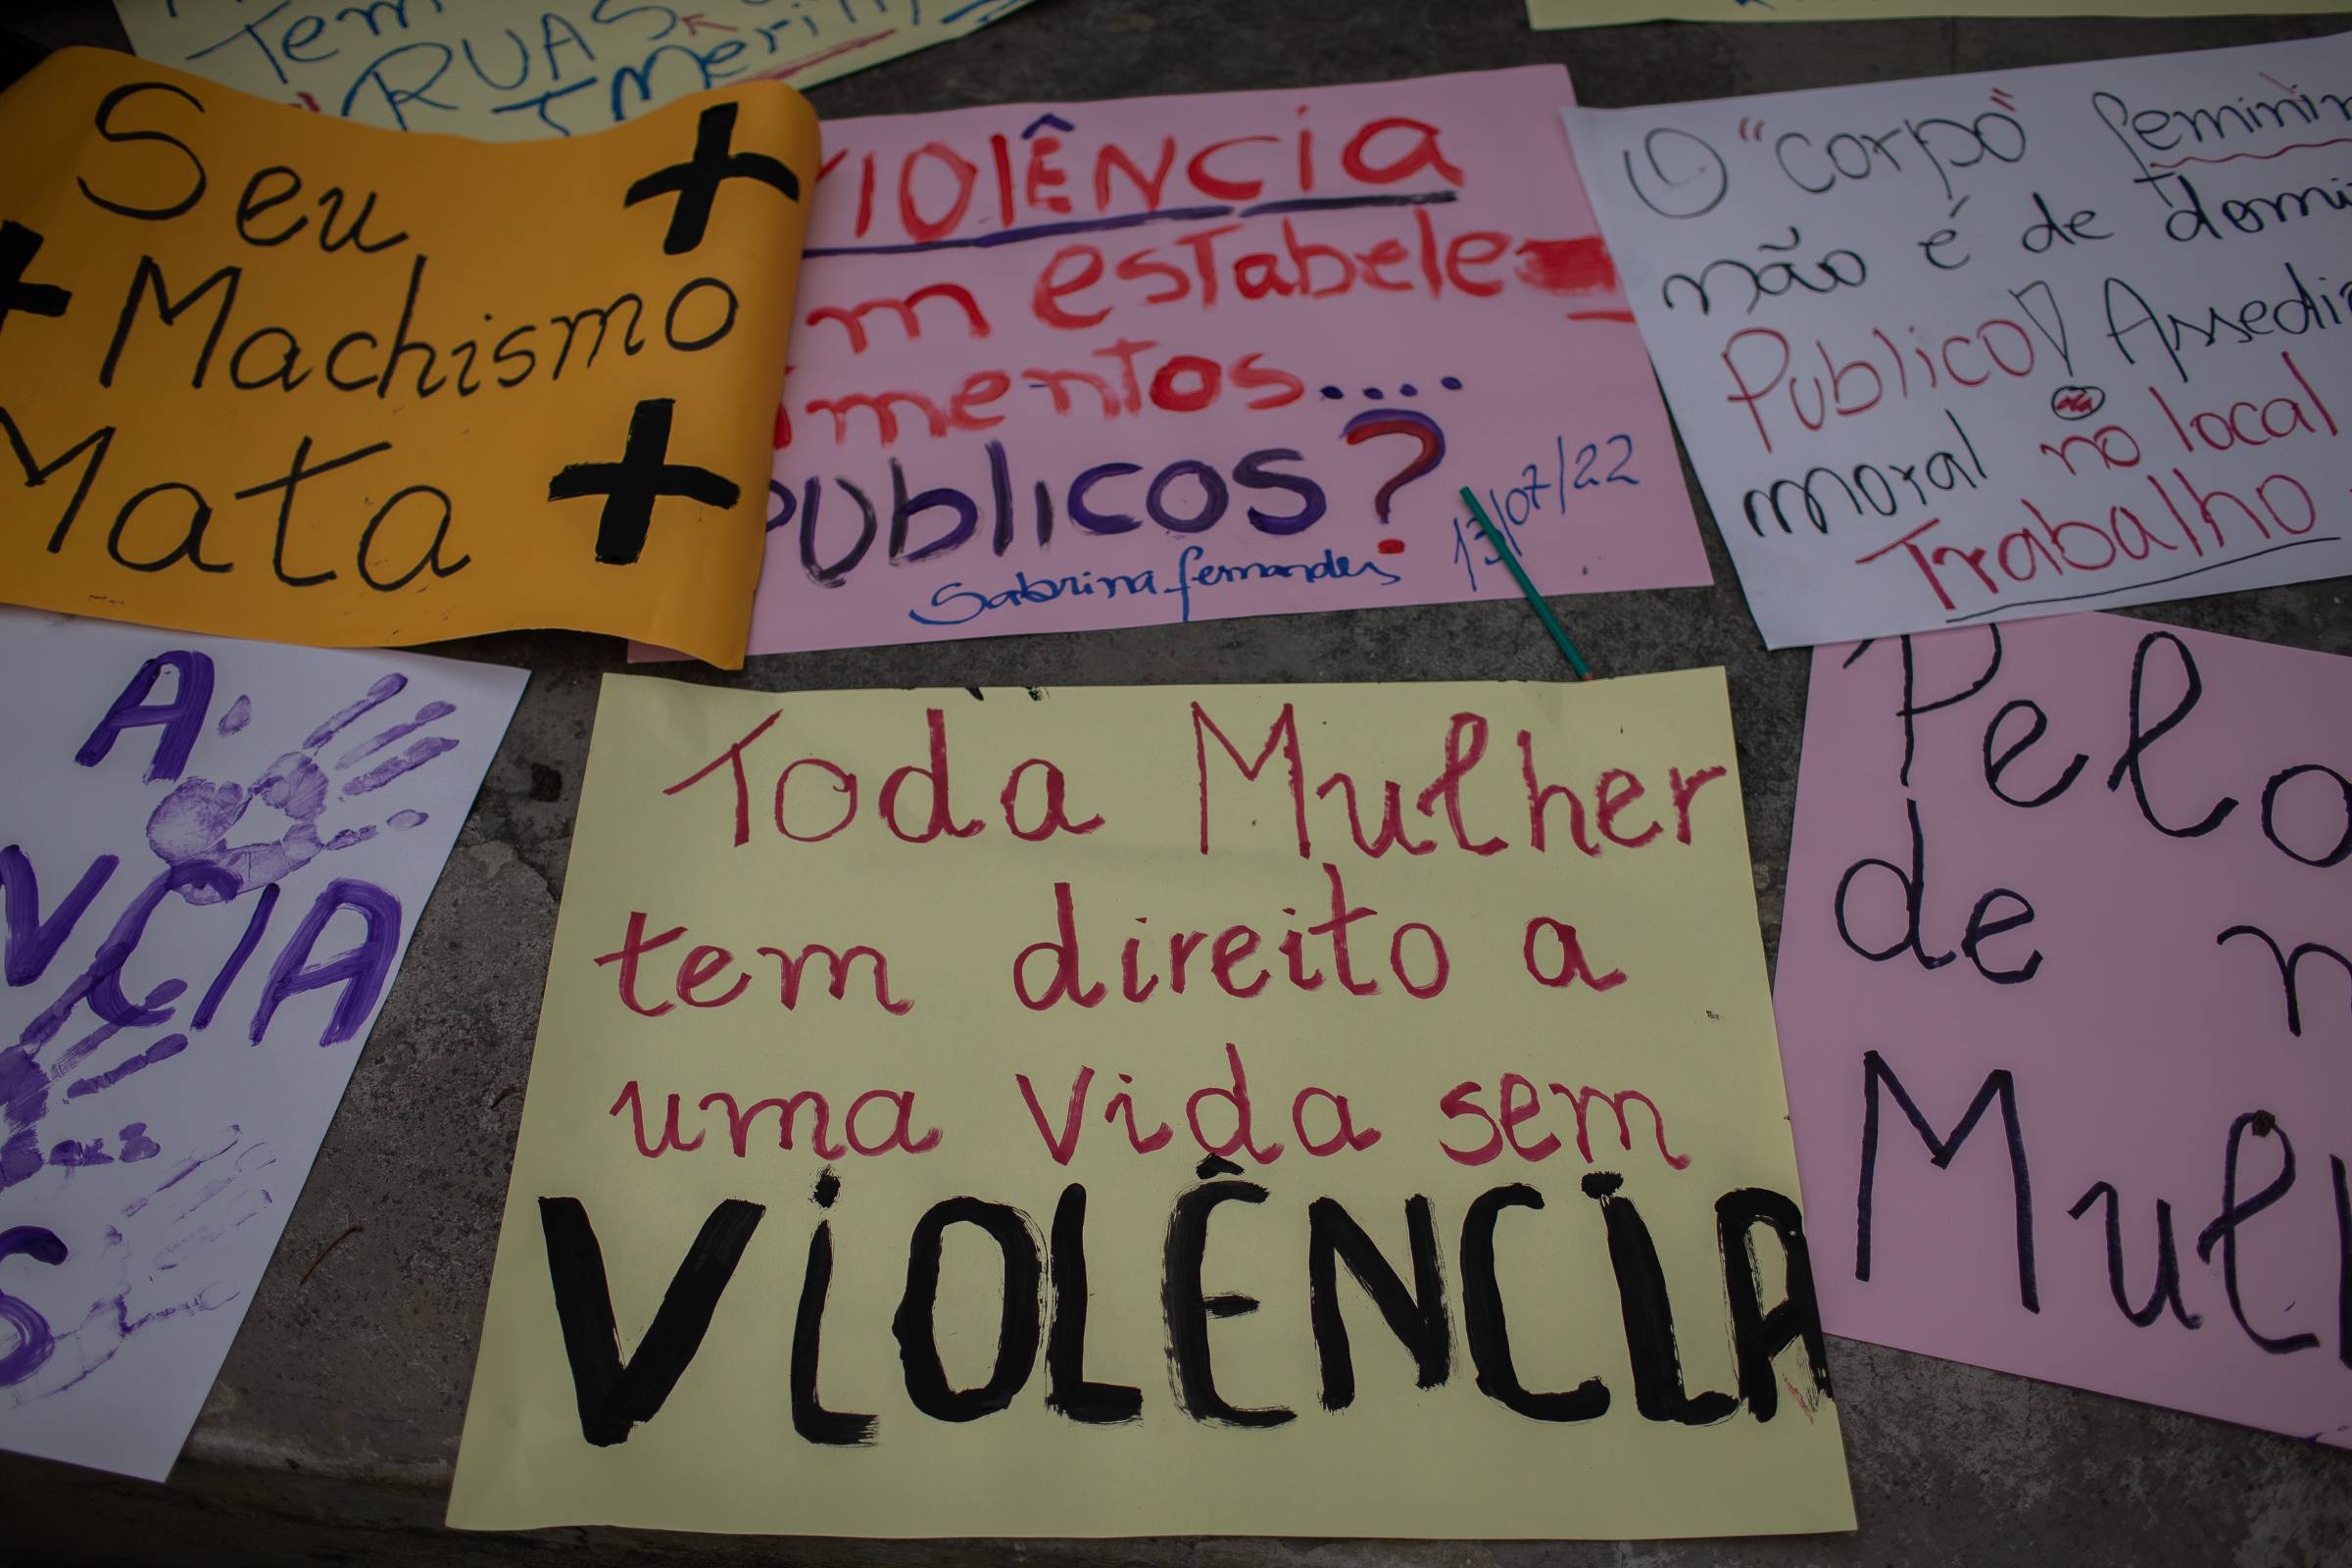 Tem
RUAS
Seu
Machismo
Mata
VIOLÊNCIA
Em estabele=
cimentos....
PÚBLICOS?
Sabrina fernandes
13/07/22
O "corpo" feminin
não é de domi
Publico! Assedi
moral no local
Trabalho
A.
NCIA
S
Toda Mulher
tem direito a
uma vida sem
VIOLÊNCIA
Pelo
de
Mul